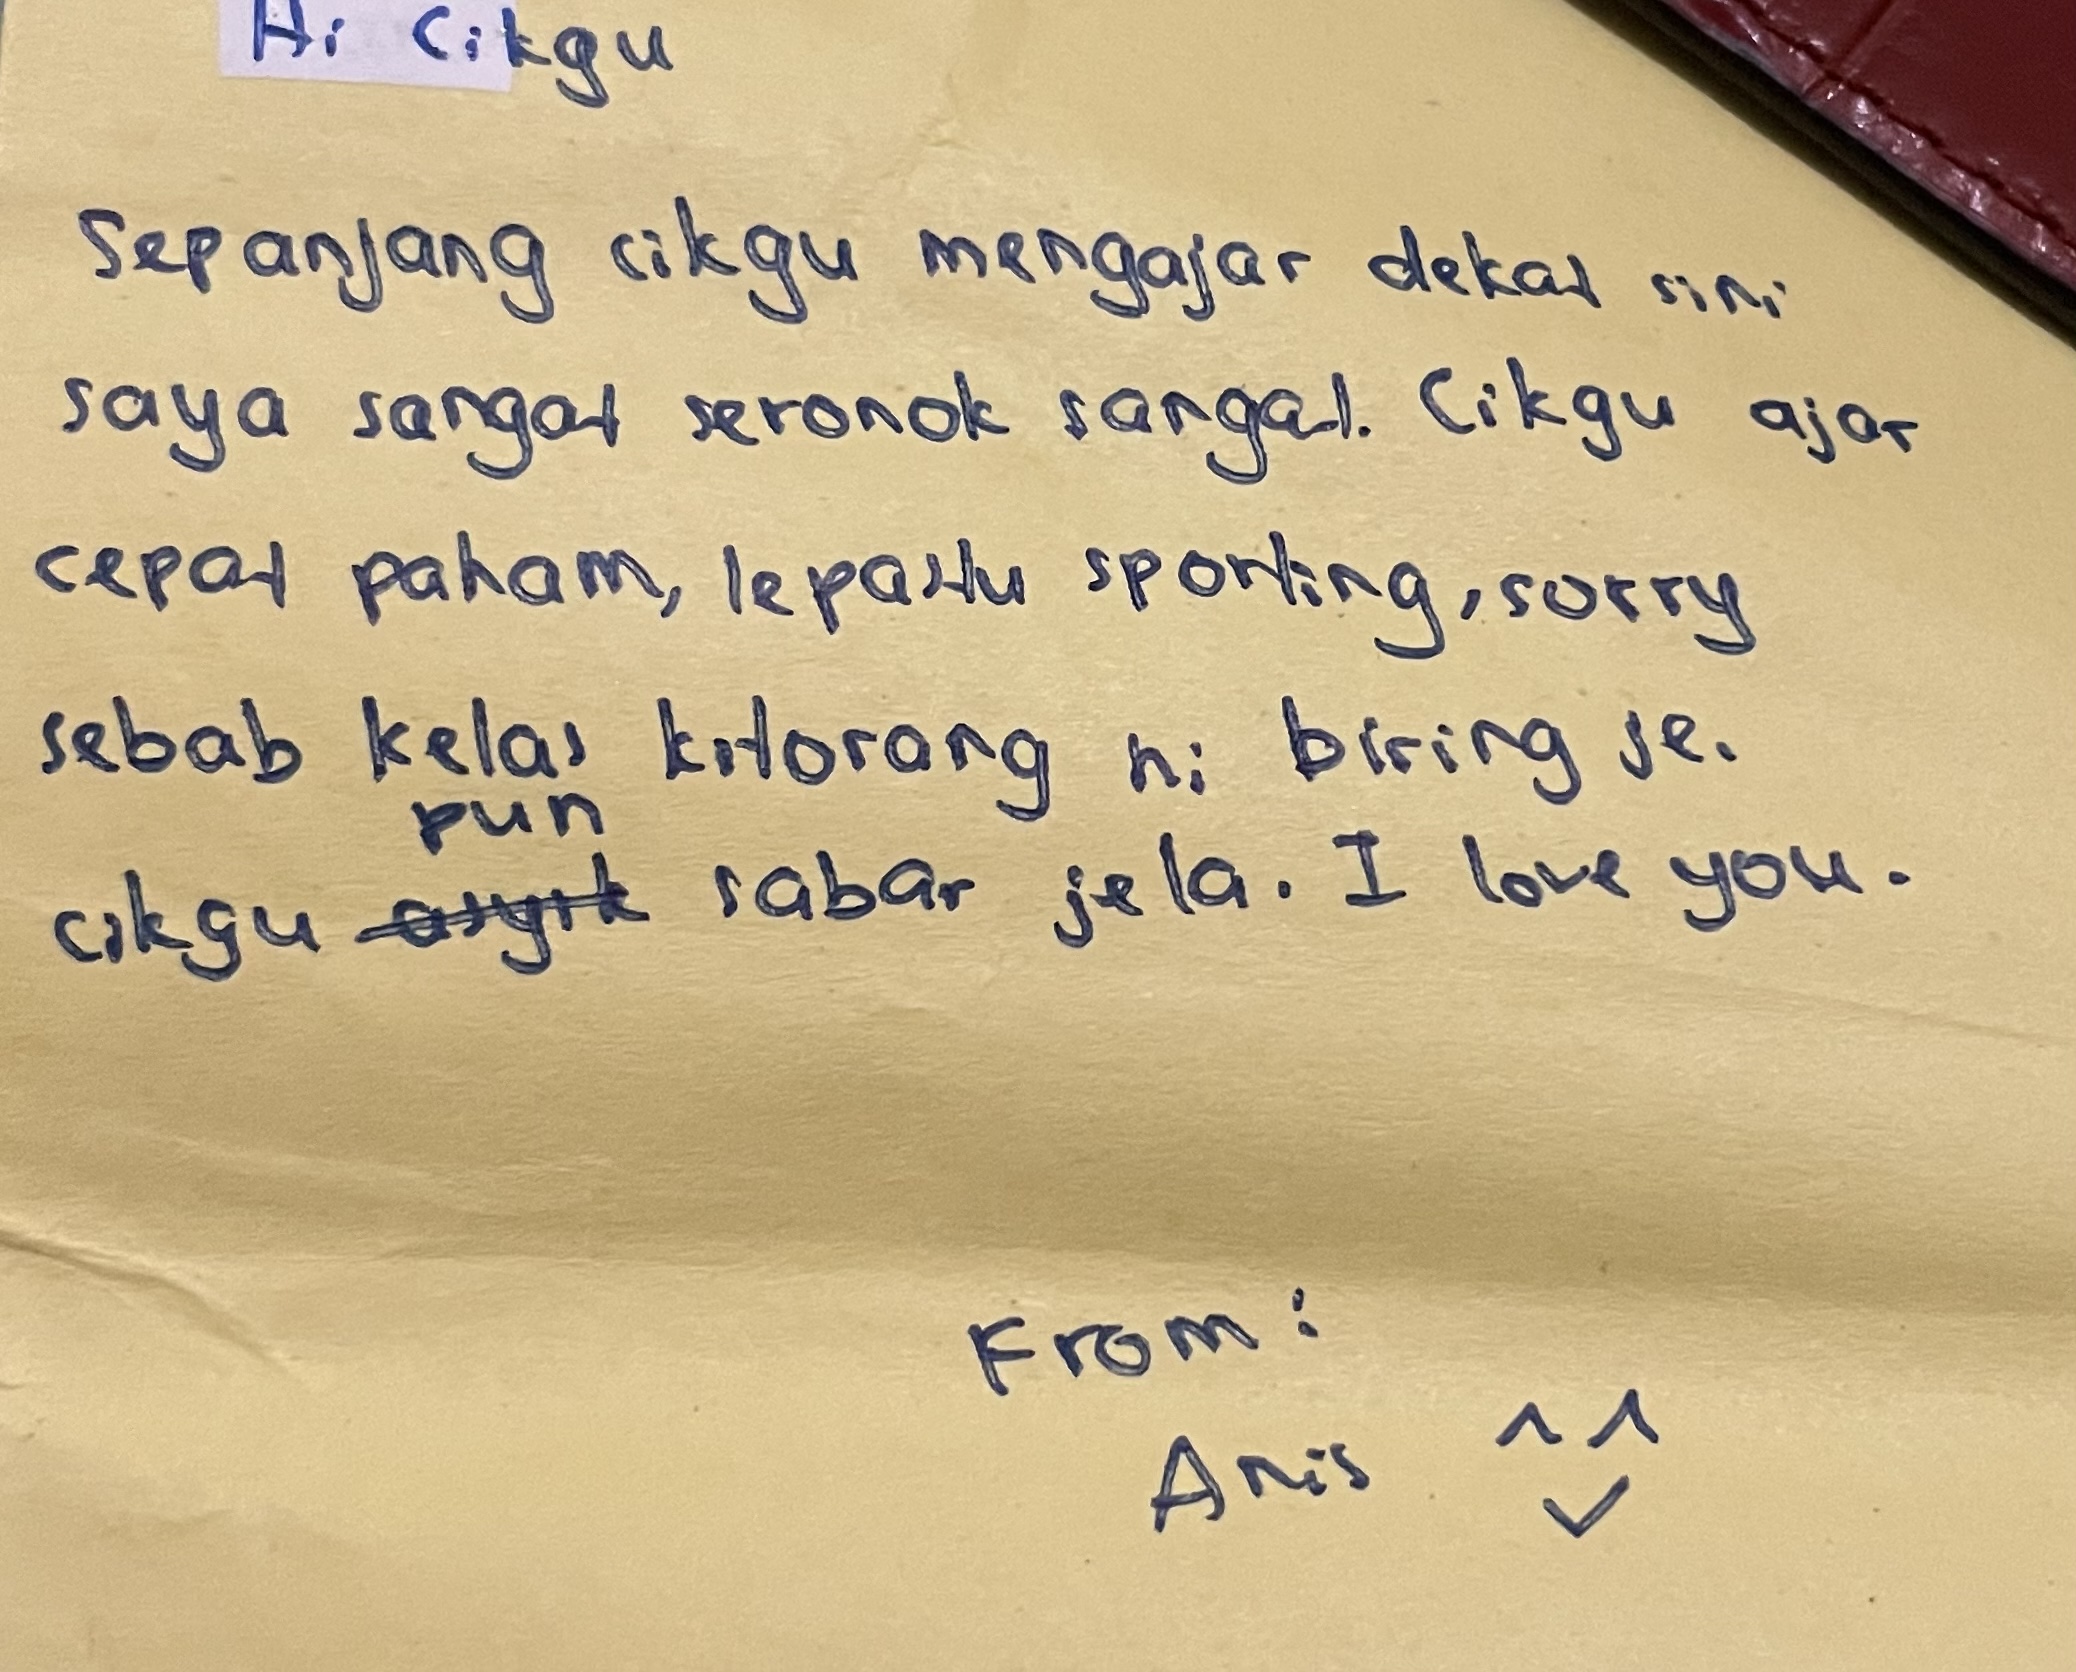 Hi Cikgu
Sepanjang cikgu mengajar dekat sini
saya sangat seronok sangat. Cikgu ajar
cepat paham, lepastu sporting, sorry
sebab kelas kitorang ni biring je.
pun
cikgu asyik sabar jela. I love you.
From:
Anis